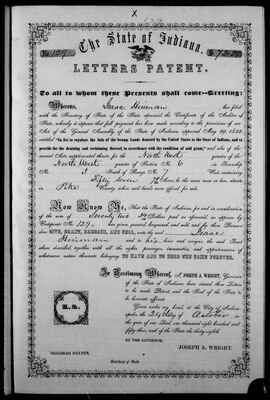 X
The State of Indiana.
LETTERS PATENT.
To all to whom these Presents shall come—Greeting:
Whereas, Isaac Heinman has filed
with the Secretary of State of the State aforesaid the Certificate of the Auditor of
State, whereby it appears that full payment has been made according to the provisions of an
Act of the General Assembly of the State of Indiana, approved May
entitled "An Act to regulate the Sale of the Swamp Lands donated by the United States to the State of Indiana, and to
provide for the draining and reclaiming thereof, in accordance with the condition of said grant," and also of the
several Acts supplemental thereto for the North West quarter of the
North West quarter of Section No. 6 in Township
No. 3 South of Range No. 7 West containing
Fifty Seven
Pike County, when said lands were offered for sale.
Now Know Ye, That the State of Indiana, for and in consideration
of the sum of Seventy two Dollars, paid as aforesaid, as appears by
Certificate No. 139, has given, granted, bargained and sold, and by these Presents
does GIVE, GRANT, BARGAIN, AND SELL, unto the said Isaac
Heinman and to his heirs and assigns, the said Tract
above described, together with all the rights, privileges, immunities, and appurtenances of
whatsoever nature thereunto belonging, TO HAVE AND TO HOLD THE SAME FOREVER.
In Testimony Whereof, I, JOSEPH A. WRIGHT, Governor
of the State of Indiana, have caused these Letters
to be made Patent, and the Seal of the State to
be hereunto affixed.
Given under my hand, at the City of Indianapolis,
the day of October in
the year of our Lord, one thousand eight hundred and
fifty three, and of the State the thirty eighth
BY THE GOVERNOR,
JOSEPH A. WRIGHT.
Secretary of State